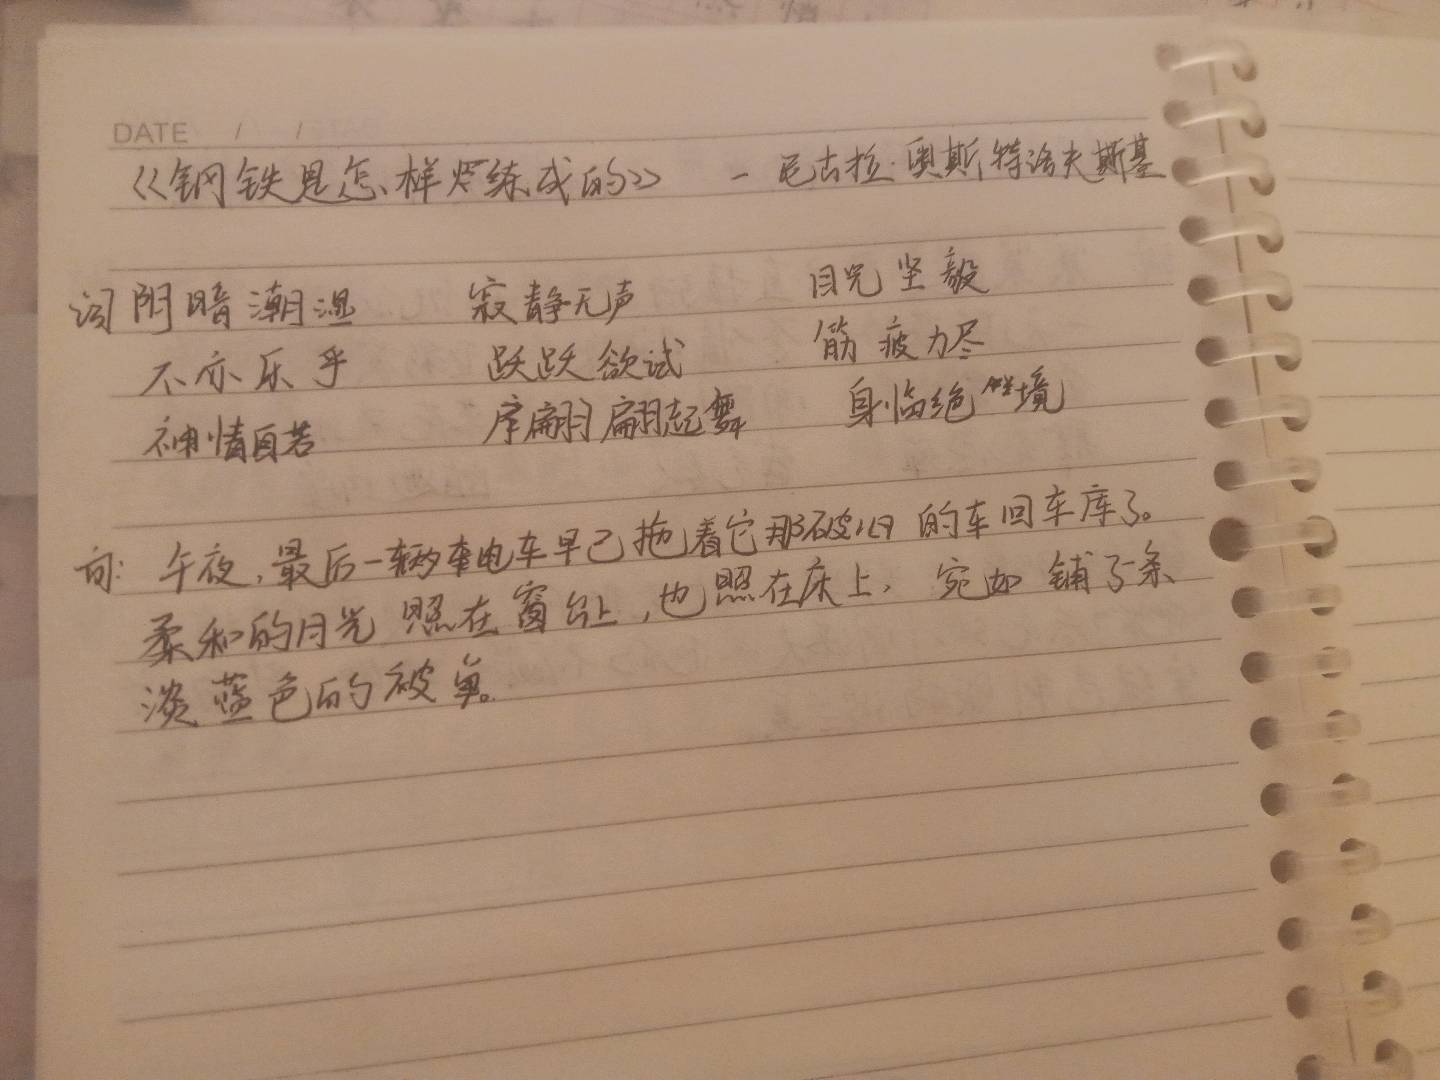 DATE / /
《钢铁是怎样炼成的》 - 尼古拉·奥斯特洛夫斯基
词 阴暗潮湿 寂静无声 目光坚毅
不亦乐乎 跃跃欲试 筋疲力尽
神情自若 翩翩起舞 身临绝境
句: 午夜,最后一辆电车早已拖着它那破旧的车回车库了。
柔和的月光照在窗台上,也照在床上,宛如铺了条
淡蓝色的被单。